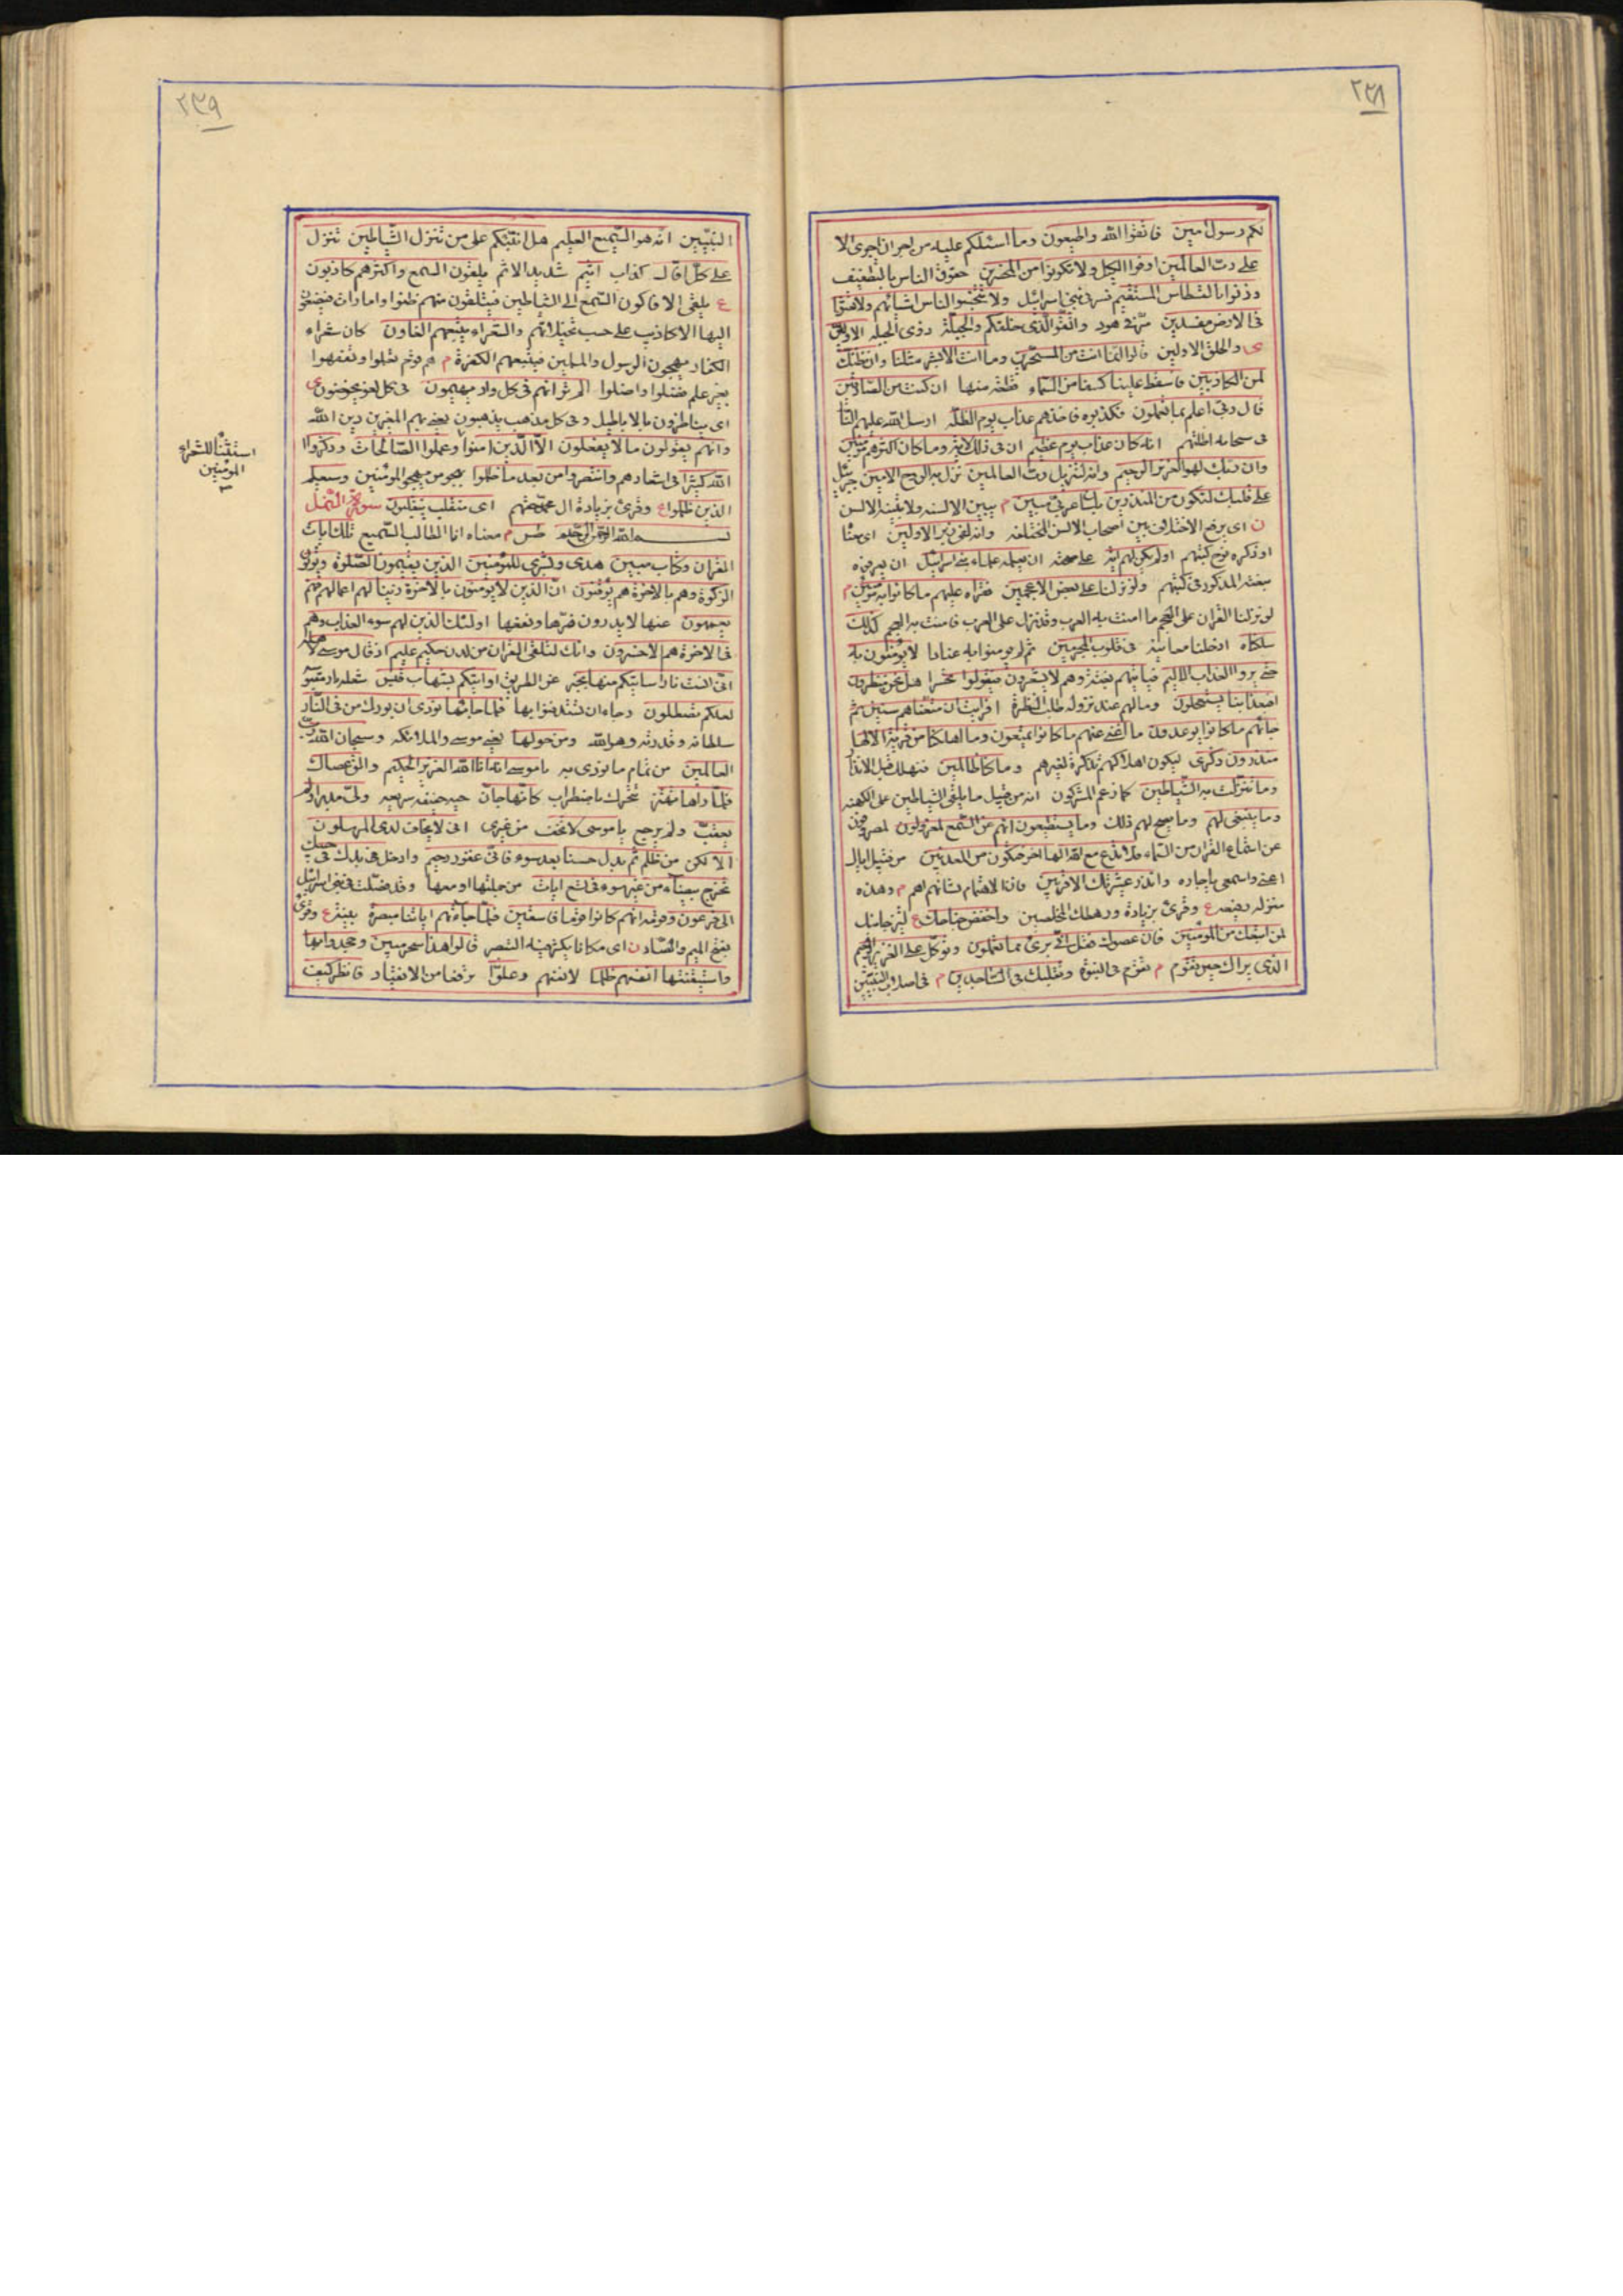 ٢٣٨
لكم رسول امين فاتقوا الله واطيعون وما اسئلكم عليه من اجر ان اجرى الا
على رب العالمين اوفوا الكيل ولا تكونوا من المخسرين حقوق الناس بالتطفيف
وزنوا بالقسطاس المستقيم فسر فى بنى اسرائيل ولا تبخسوا الناس اشيائهم ولا تعثوا
فى الارض مفسدين مر فى هود واتقوا الذى خلقكم والجبلة ذوى الجبله الاولين
ى والخلق الاولين قالوا انما انت من المسحرين وما انت الا بشر مثلنا وان نظنك
لمن الكاذبين فاسقط علينا كسفا من السماء قطعه منها ان كنت من الصادقين
قال ربى اعلم بما تعملون فكذبوه فاخذهم عذاب يوم الظلة ارسل الله عليهم
فى سحابه اظلتهم انه كان عذاب يوم عظيم ان فى ذلك لاية وما كان اكثرهم مؤمنين
وان ربك لهو العزيز الرحيم وانه لتنزيل رب العالمين نزل به الروح الامين جبرئيل
على قلبك لتكون من المنذرين بلسان عربى مبين م يبين الالسنه ولا تبينه الالسن
ن اى يرفع الاختلاف بين اصحاب الالسن المختلفه وانه لفى زبر الاولين اى معناه
او ذكره فى كتبهم اولم يكن لهم اية على صحته ان يعلمه علماء بنى اسرائيل ان يعرفوه
بنعته المذكور فى كتبهم ولو نزلنا على بعض الاعجمين فقراه عليهم ما كانوا به مؤمنين م
لو نزلنا القران على العجم ما امنت به العرب وقد نزل على العرب فامنت به العجم كذلك
سلكناه ادخلنا معانيه فى قلوب المجرمين ثم لم يومنوا به عنادا لا يؤمنون به
حتى يروا العذاب الاليم فياتيهم بغتة وهم لا يشعرون فيقولوا تحسرا هل نحن منظرون
افبعذابنا يستعجلون وما لهم عند نزوله طلب النظرة افرايت ان متعناهم سنين ثم
جائهم ما كانوا يوعدون ما اغنى عنهم ما كانوا يمتعون وما اهلكنا من قرية الا لها
منذرون ذكرى ليكون اهلاكهم تذكرة لغيرهم وما كنا ظالمين فنهلك قبل الانذار
وما تنزلت به الشياطين كما زعم المشركون انه من قبيل ما يلقى الشياطين على الكهنه
وما ينبغى لهم وما يصح لهم ذلك وما يستطيعون انهم عن السمع لمعزولون لمصروفون
عن استماع القران من السماء فلا تدع مع الله الها اخر فتكون من المعذبين من قبيل اياك
اعنى واسمعى يا جاره وانذر عشيرتك الاقربين فان الاهتمام بشانهم اهم م وهذه
منزله رفيعه ع وقرئ بزيادة ورهطك المخلصين واخفض جناحك ع لين جانبك
لمن اتبعك من المؤمنين فان عصوك فقل انى برئ مما تعملون وتوكل على العزيز الرحيم
الذى يراك حين تقوم م تقوم فى النبوة وتقلبك فى الساجدين م فى اصلاب النبيين
٢٣٩
النبيين انه هو السميع العليم هل انبئكم على من تنزل الشياطين تنزل
على كل افاك كذاب اثيم شديد الاثم يلقون السمع واكثرهم كاذبون
ع يلقى الافاكون السمع الى الشياطين فيتلقون منهم ظنونا وامارات فيضمون
اليها الاكاذيب على حسب تخيلاتهم والشعراء يتبعهم الغاون كان شعراء
الكفار يهجون الرسول والمسلمين فيتبعهم الكفرة م هم قوم تعلموا وتفقهوا
بغير علم فضلوا واضلوا الم تر انهم فى كل واد يهيمون فى كل لغو يخوضون ى
اى يناظرون بالاباطيل وفى كل مذهب يذهبون يعنى بهم المغيرين دين الله
وانهم يقولون ما لا يفعلون الا الذين امنوا وعملوا الصالحات وذكروا
الله كثيرا فى اشعارهم وانتصروا من بعد ما ظلموا بهجو من يهجو المؤمنين وسيعلم
الذين ظلموا ع وقرئ بزيادة ال محمد حقهم اى منقلب ينقلبون سورة النمل
بسم الله الرحمن الرحيم طس م معناه انا الطالب السميع تلك ايات
القران وكتاب مبين هدى وبشرى للمؤمنين الذين يقيمون الصلوة ويؤتون
الزكوة وهم بالاخرة هم يوقنون ان الذين لا يؤمنون بالاخرة زينا لهم اعمالهم فهم
يعمهون عنها لا يدرون ضرها ونفعها اولئك الذين لهم سوء العذاب وهم
فى الاخرة هم الاخسرون وانك لتلقى القران من لدن حكيم عليم اذ قال موسى لاهله
انى انست نارا ساتيكم منها بخبر عن الطريق او اتيكم بشهاب قبس شعله نار مقبوسه
لعلكم تصطلون رجاء ان تستدفئوا بها فلما جائها نودى ان بورك من فى النار
سلطانه وقدرته وهو الله ومن حولها يعنى موسى والملائكه وسبحان الله رب
العالمين من تمام ما نودى به يا موسى انه انا الله العزيز الحكيم والق عصاك
فلما راها تهتز تتحرك باضطراب كانها جان حيه خفيفه سريعه ولى مدبرا ولم
يعقب ولم يرجع يا موسى لا تخف من غيرى انى لا يخاف لدى المرسلون
الا لكن من ظلم ثم بدل حسنا بعد سوء فانى غفور رحيم وادخل يدك فى جيبك
تخرج بيضاء من غير سوء فى تسع ايات من جملتها او معها وقد فصلت فى بنى اسرائيل
الى فرعون وقومه انهم كانوا قوما فاسقين فلما جائتهم اياتنا مبصرة بينة ع وقرئ
بفتح الميم والصاد ن اى مكانا يكثر فيه التبصر قالوا هذا سحر مبين وجحدوا بها
واستيقنتها انفسهم ظلما لانفسهم وعلوا ترفعا من الانقياد فانظر كيف
المؤمنين